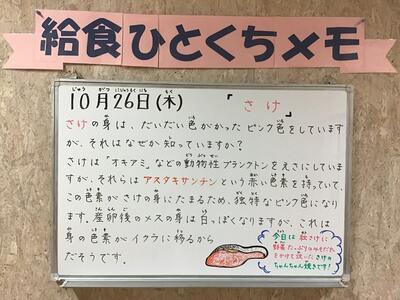 給食ひとくちメモ
10月26日(木) 「さけ」
さけの身は、だいだい色がかったピンク色をしています
が、それはなぜか知っていますか?
さけは「オキアミ」などの動物性プランクトンをえさにしています
が、それらはアスタキサンチンという赤い色素を持っていて、
この色素がさけの身にたまるため、独特なピンク色になり
ます。産卵後のメスの身は白っぽくなりますが、これは
身の色素がイクラに移るから
だそうです。
今日は秋さけに
野菜たっぷりのみそだれ
をかけて焼いたさけの
ちゃんちゃん焼きです!